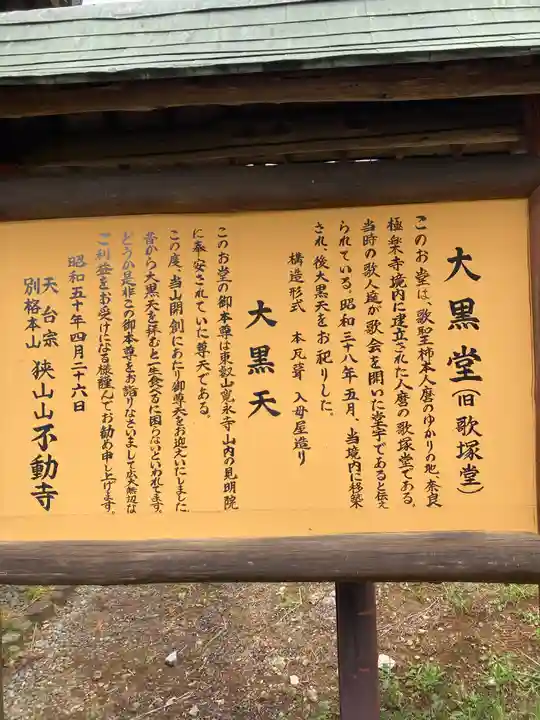 大黒堂（旧歌塚堂）
このお堂は、歌聖柿本人麿のゆかりの地、奈良
極楽寺境内に建立された人麿の歌塚堂である。
当時の歌人達が歌会を開いた堂宇であると伝え
られている。昭和三十八年五月、当境内に移築
され、後大黒天をお祀りした。
構造形式　本瓦葺　入母屋造り
大黒天
このお堂の御本尊は東叡山寛永寺山内の見明院
に奉安されていた尊天である。
この度、当山開創にあたり御尊天をお迎えいたしました。
昔から大黒天を拝むと一生食べるに困らないといわれてます。
どうか是非この御本尊をお詣りなさいまして広大無辺な
ご利益をお受けになる様謹んでお勧め申し上げます。
昭和五十年四月二十六日
天台宗
別格本山　狭山山不動寺